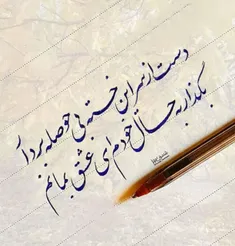 دست از سر این خسته بی حوصله بردار
بگذار به حال خودم ای عشق بمانم